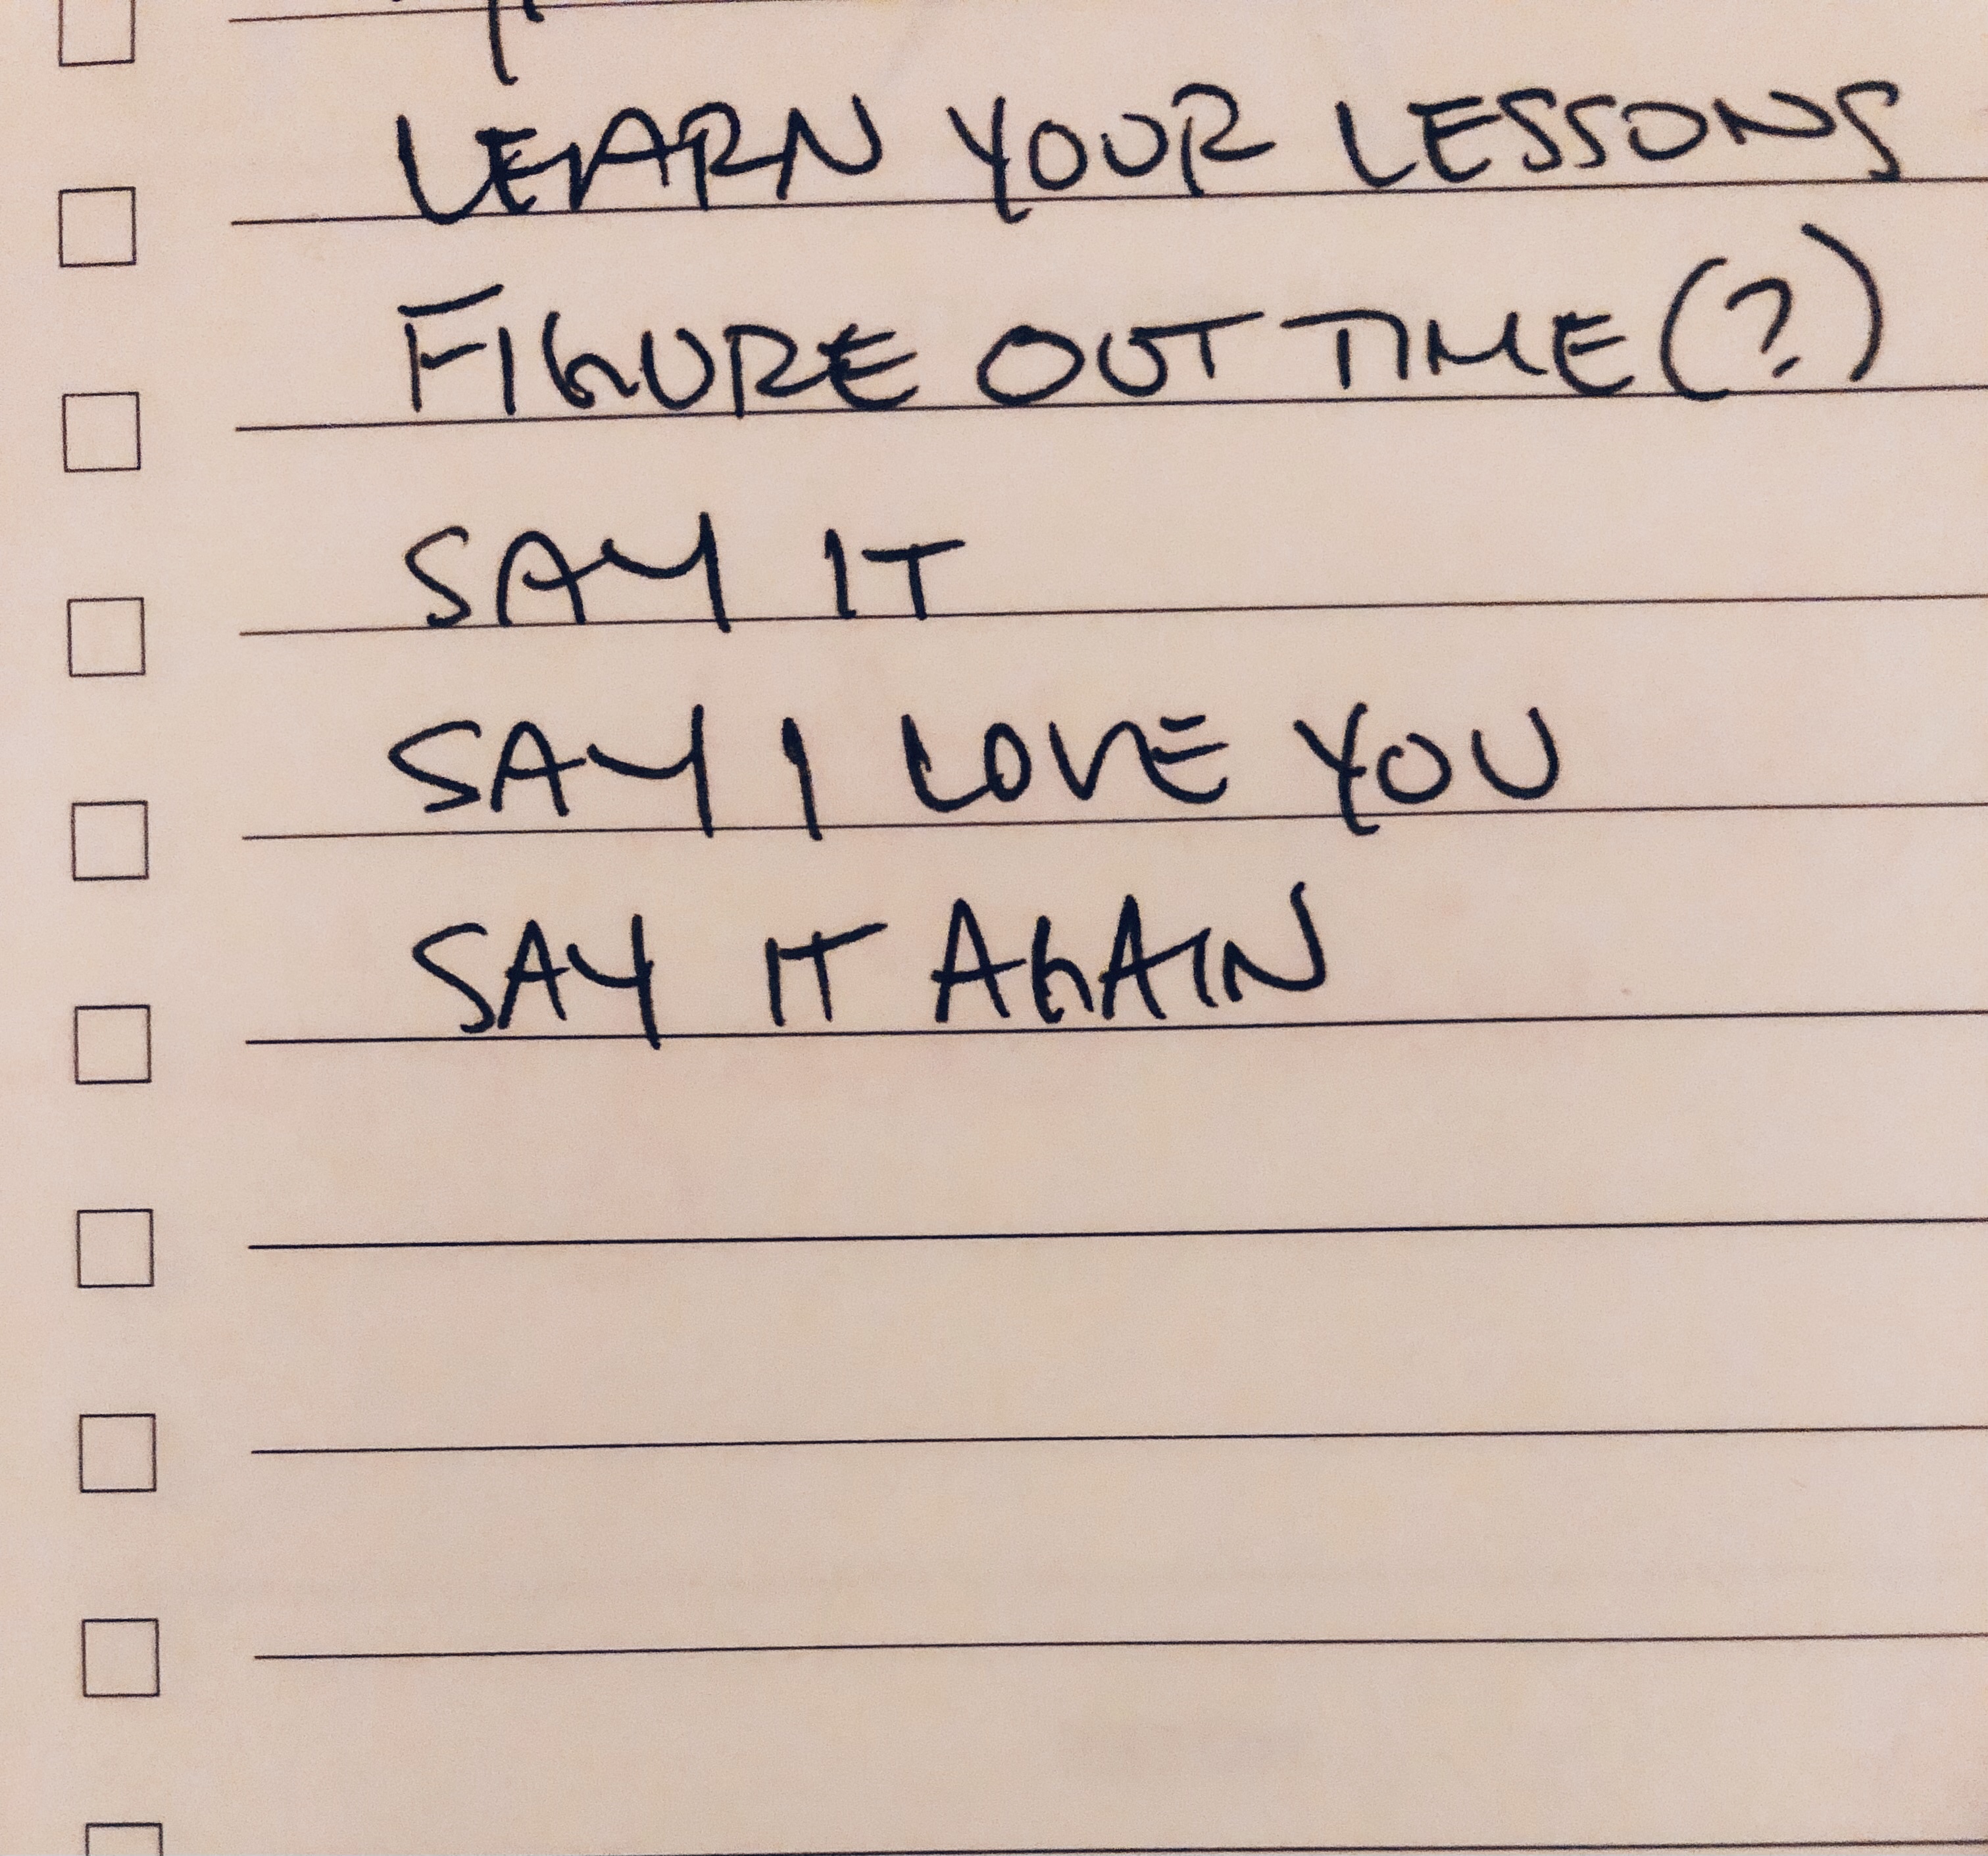 LEARN YOUR LESSONS
FIGURE OUT TIME (?)
SAY IT
SAY I LOVE YOU
SAY IT AGAIN